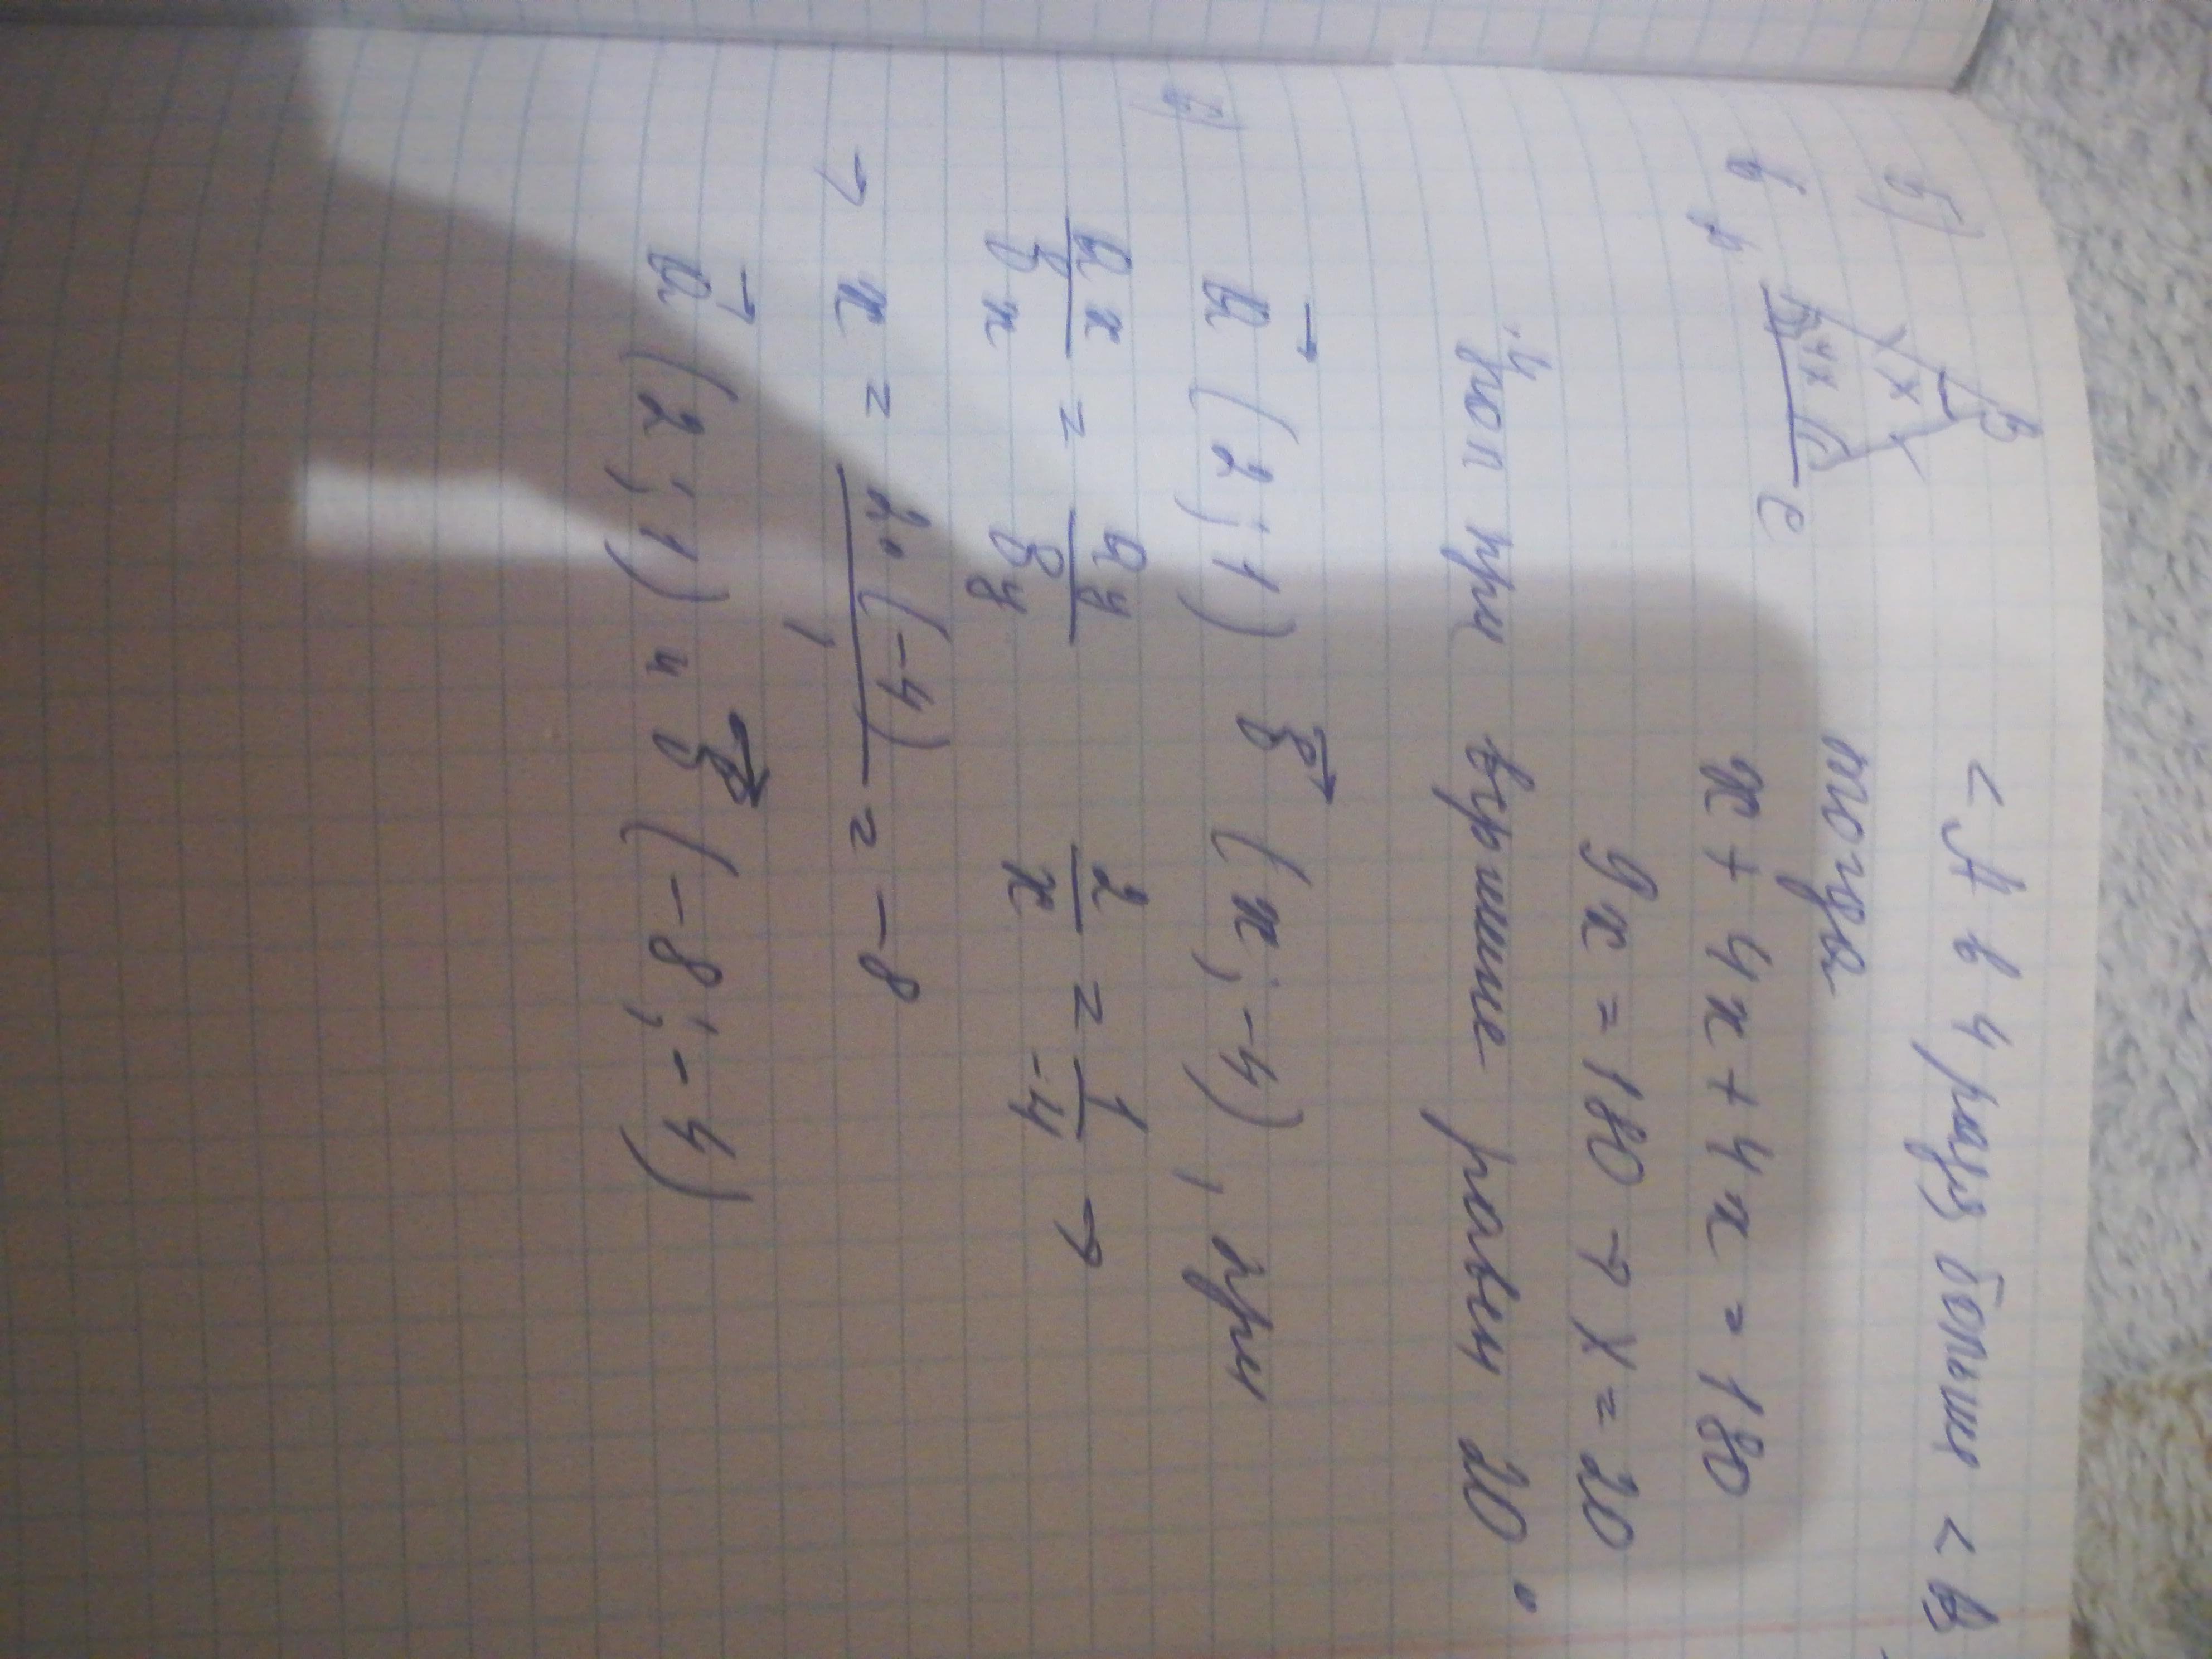 б)
< А в 4 раза больше < В
В
х
4х
А
С
тогда
х + 4х + 4х = 180
9х = 180 → х = 20
Угол при вершине равен 20°
a⃗ (2; 1) b⃗ (x; -4), при
ax/bx = ay/by 2/x = 1/-4 →
→ x = 2·(-4)/1 = -8
a⃗ (2; 1) и b⃗ (-8; -4)